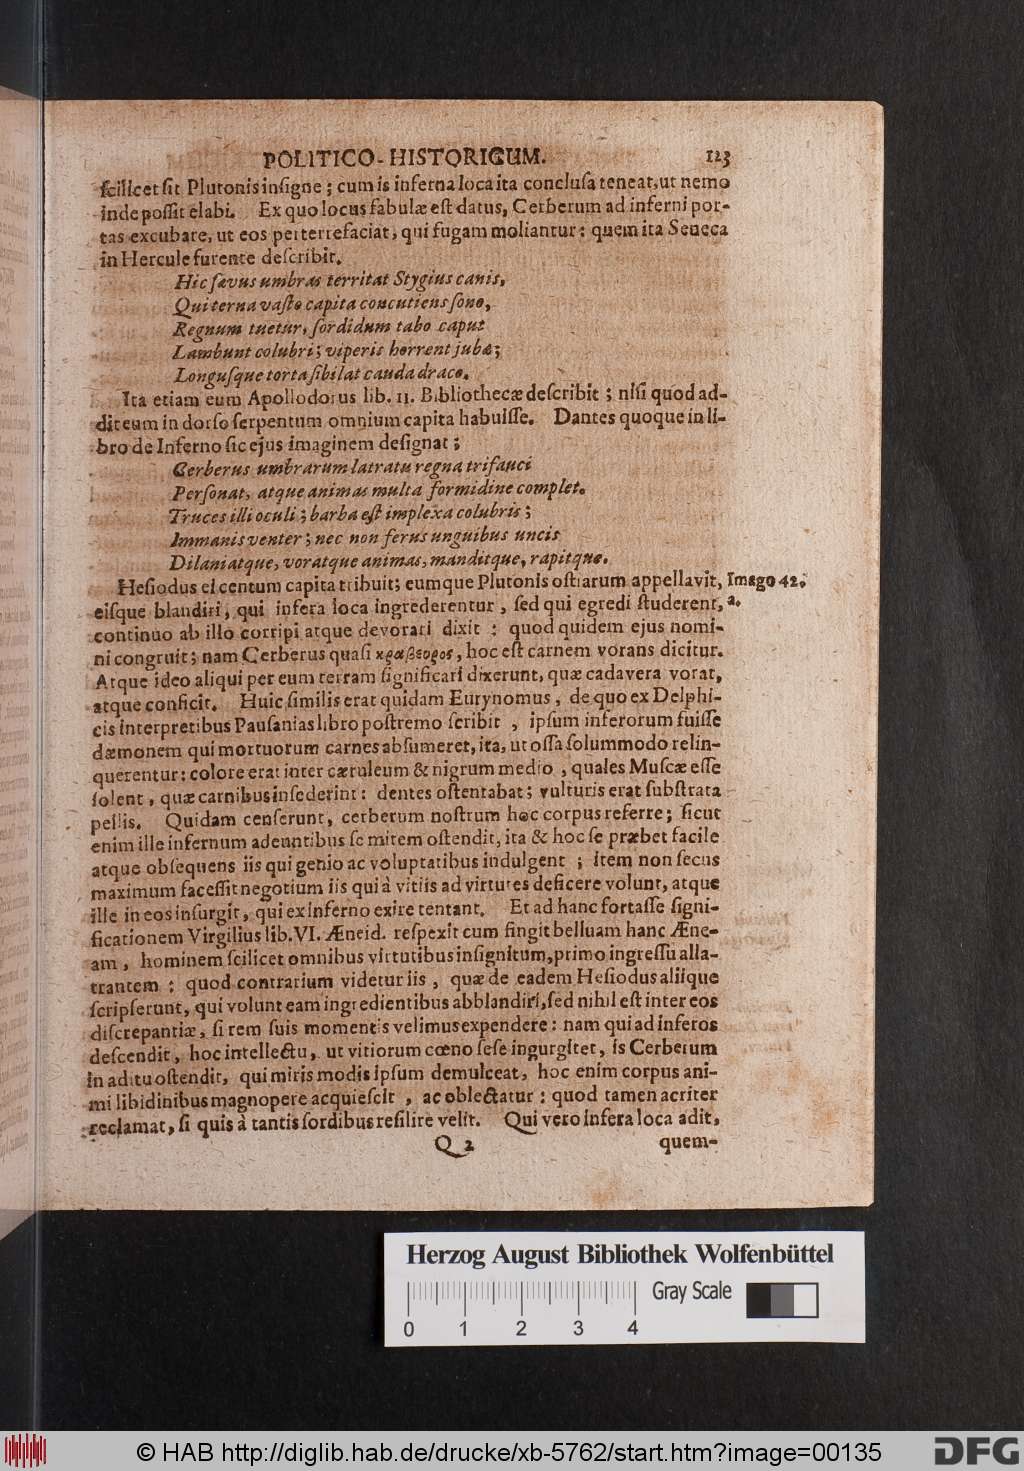 POLITICO-HISTORICUM. 123
ſcilicet ſit Plutonis inſigne ; cum is inferna loca ita concluſa teneat, ut nemo
inde poſſit elabi. Ex quo locus fabulæ eſt datus, Cerberum ad inferni por-
tas excubare, ut eos perterrefaciat, qui fugam moliantur: quem ita Seneca
in Hercule furente deſcribit.
Hic ſævus umbras territat Stygius canis,
Qui terna vaſto capita concutiens ſono,
Regnum tuetur, ſordidum tabo caput
Lambunt colubri; viperis horrent jubæ;
Longuſque torta ſibilat cauda draco.
Ita etiam eum Apollodorus lib. 11. Bibliothecæ deſcribit ; niſi quod ad-
dit eum in dorſo ſerpentum omnium capita habuiſſe. Dantes quoque in li-
bro de Inferno ſic ejus imaginem deſignat ;
Cerberus umbrarum latratu regna trifauci
Perſonat, atque animas multa formidine complet.
Truces illi oculi ; barba eſt implexa colubris ;
Immanis venter ; nec non ferus unguibus uncis
Dilaniatque, voratque animas, manditque, rapitque.
Heſiodus ei centum capita tribuit; eumque Plutonis oſtiarum appellavit, Imago 42.
eiſque blandiri, qui infera loca ingrederentur, ſed qui egredi ſtuderent, a.
continuo ab illo corripi atque devorari dixit : quod quidem ejus nomi-
ni congruit; nam Cerberus quaſi κρεαβόρος, hoc eſt carnem vorans dicitur.
Atque ideo aliqui per eum terram ſignificari dixerunt, quæ cadavera vorat,
atque conficit. Huic ſimilis erat quidam Eurynomus, de quo ex Delphi-
cis interpretibus Pauſanias libro poſtremo ſcribit , ipſum inferorum fuiſſe
dæmonem qui mortuorum carnes abſumeret, ita, ut oſſa ſolummodo relin-
querentur: colore erat inter cæruleum & nigrum medio , quales Muſcæ eſſe
ſolent, quæ carnibus inſederint: dentes oſtentabat; vulturis erat ſubſtrata
pellis. Quidam cenſerunt, cerberum noſtrum hoc corpus referre; ſicut
enim ille infernum adeuntibus ſe mitem oſtendit, ita & hoc ſe præbet facile
atque obſequens iis qui genio ac voluptatibus indulgent ; item non ſecus
maximum faceſſit negotium iis qui à vitiis ad virtutes deficere volunt, atque
ille in eos inſurgit, qui ex inferno exire tentant. Et ad hanc fortaſſe ſigni-
ficationem Virgilius lib. VI. Æneid. reſpexit cum fingit belluam hanc Æne-
am, hominem ſcilicet omnibus virtutibus inſignitum, primo ingreſſu alla-
trantem : quod contrarium videtur iis , quæ de eadem Heſiodus aliique
ſcripſerunt, qui volunt eam ingredientibus abblandiri, ſed nihil eſt inter eos
diſcrepantiæ, ſi rem ſuis momentis velimus expendere: nam qui ad inferos
deſcendit, hoc intellectu, ut vitiorum cœno ſeſe ingurgitet, is Cerberum
in aditu oſtendit, qui miris modis ipſum demulceat, hoc enim corpus ani-
mi libidinibus magnopere acquieſcit , ac oblectatur : quod tamen acriter
reclamat, ſi quis à tantis ſordibus reſilire velit. Qui vero infera loca adit,
Q 2 quem-
Herzog August Bibliothek Wolfenbüttel
Gray Scale
0 1 2 3 4
© HAB http://diglib.hab.de/drucke/xb-5762/start.htm?image=00135
DFG